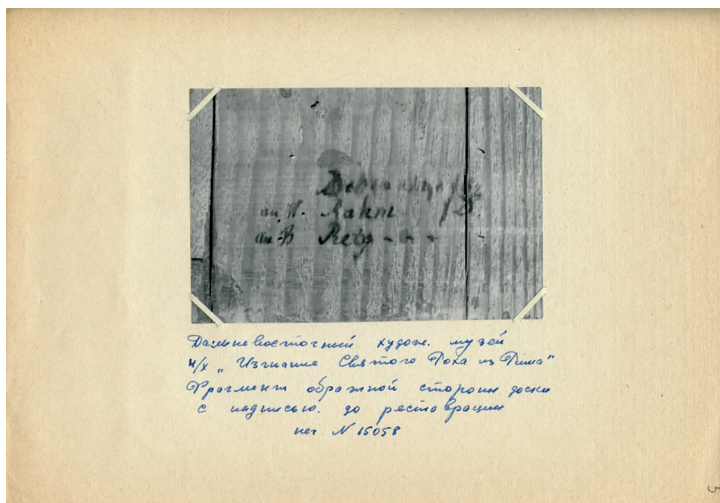 an H. Rahm
Retz - - -
Дальневосточный худож. музей
н/х „Изгнание Святого Роха из Рима"
Фрагмент обратной стороны доски
с надписью. до реставрации
нег N 15058